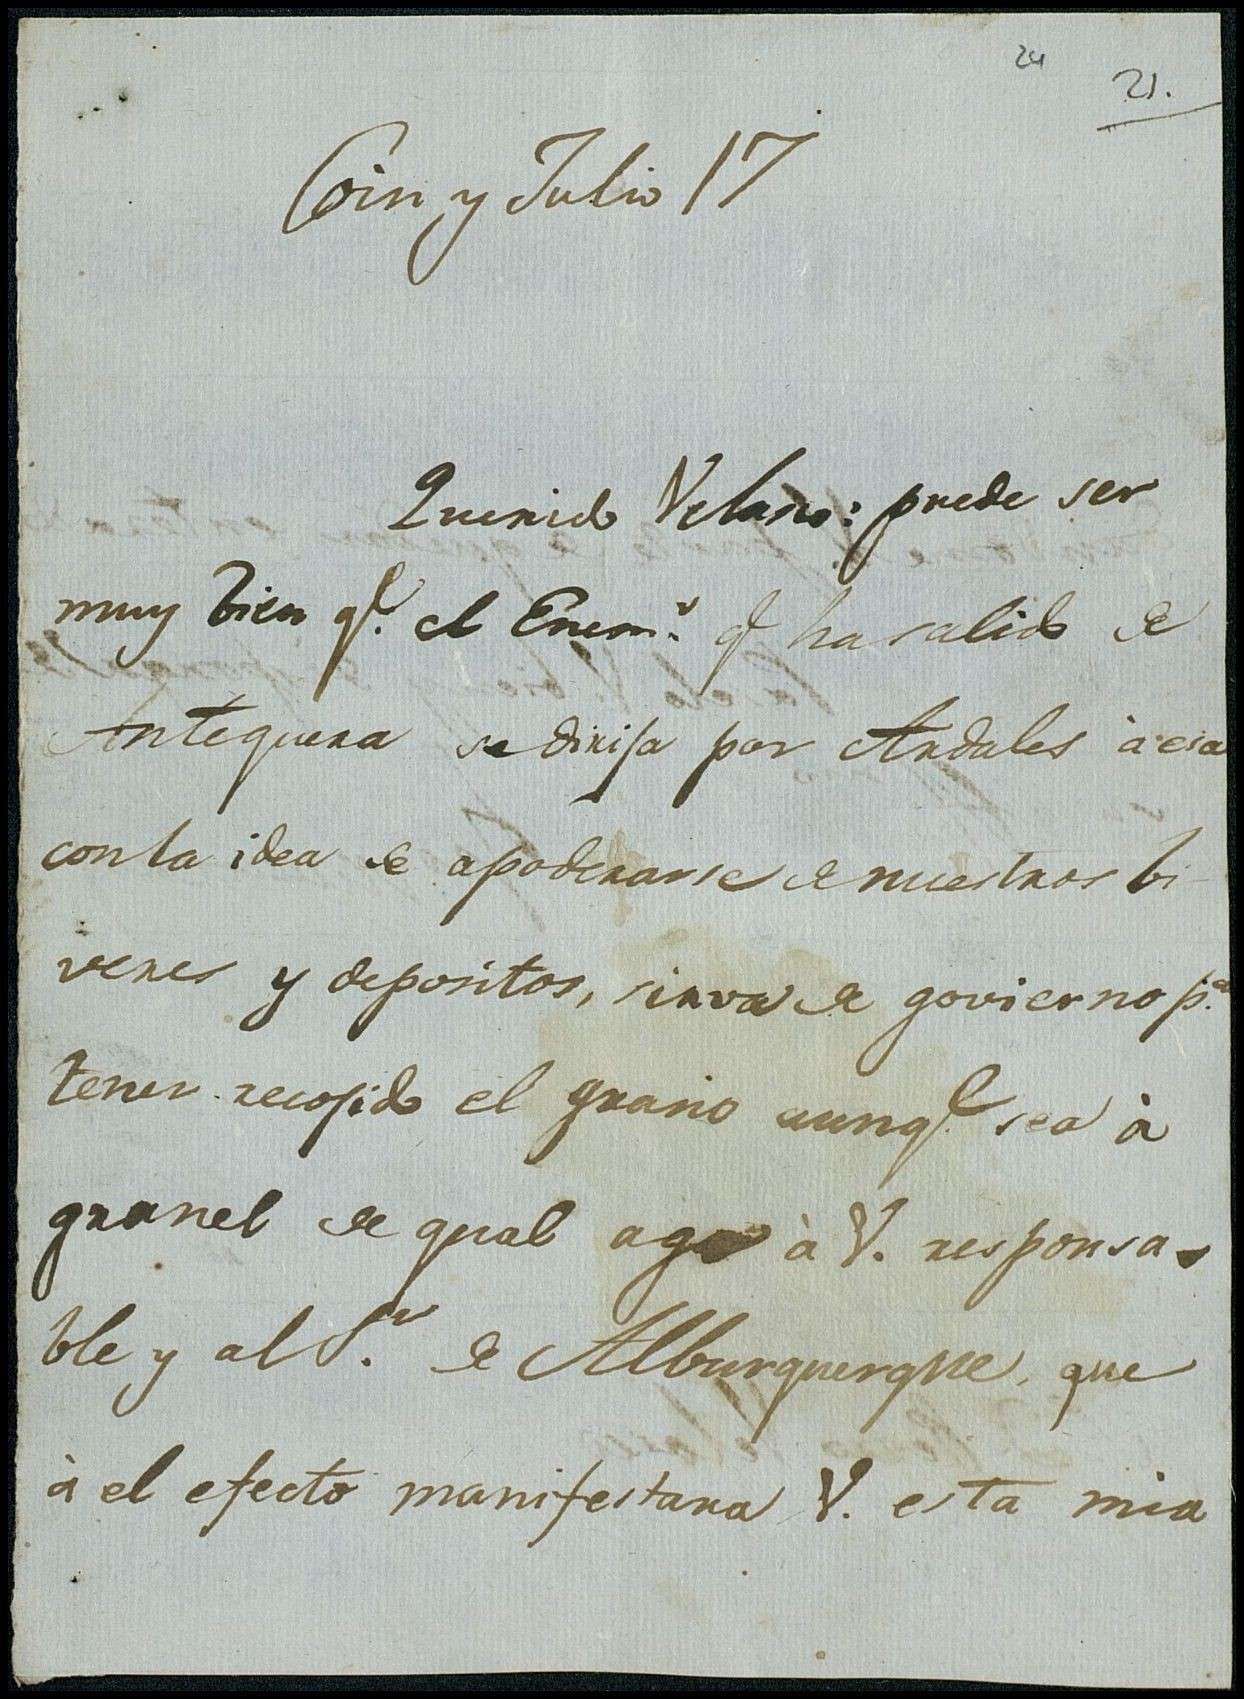 24
21.
Coin y Julio 17
Querido Velasco: puede ser
muy bien q.e el Enem.o q.e ha salido de
Antequera se dirija por Ardales à esa
con la idea de apoderarse de nuestros bi-
veres y depositos, sirva de govierno p.a
tener recojido el grano aunq.e sea à
granel de qual ago à V. responsa-
ble y al S.or de Alburquerque, que
à el efecto manifestara V. esta mia